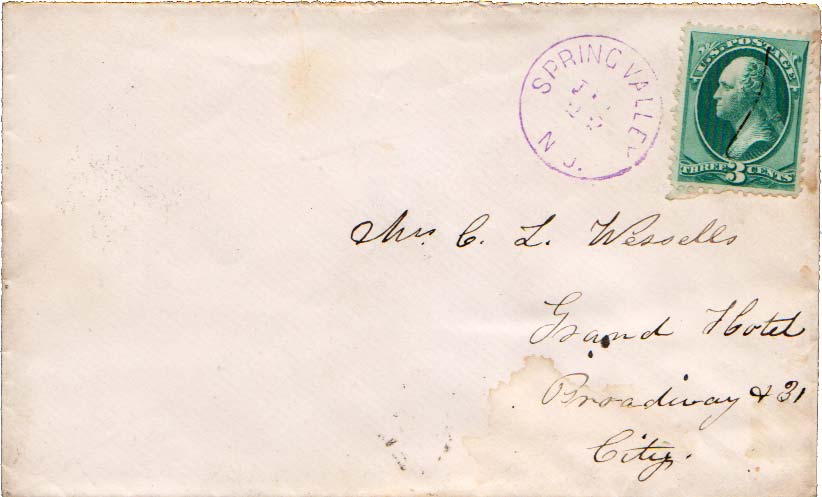 SPRING VALLEY
22
N.J.
U.S. POSTAGE
THREE 3 CENTS
Mrs. C. L. Wessells
Grand Hotel
Broadway & 31
City.